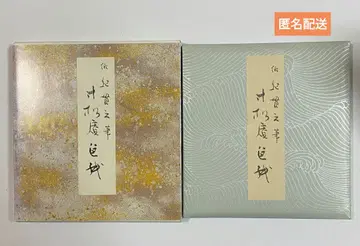 匿名配送
伝紀貫之筆
寸松庵色紙
伝紀貫之筆
寸松庵色紙